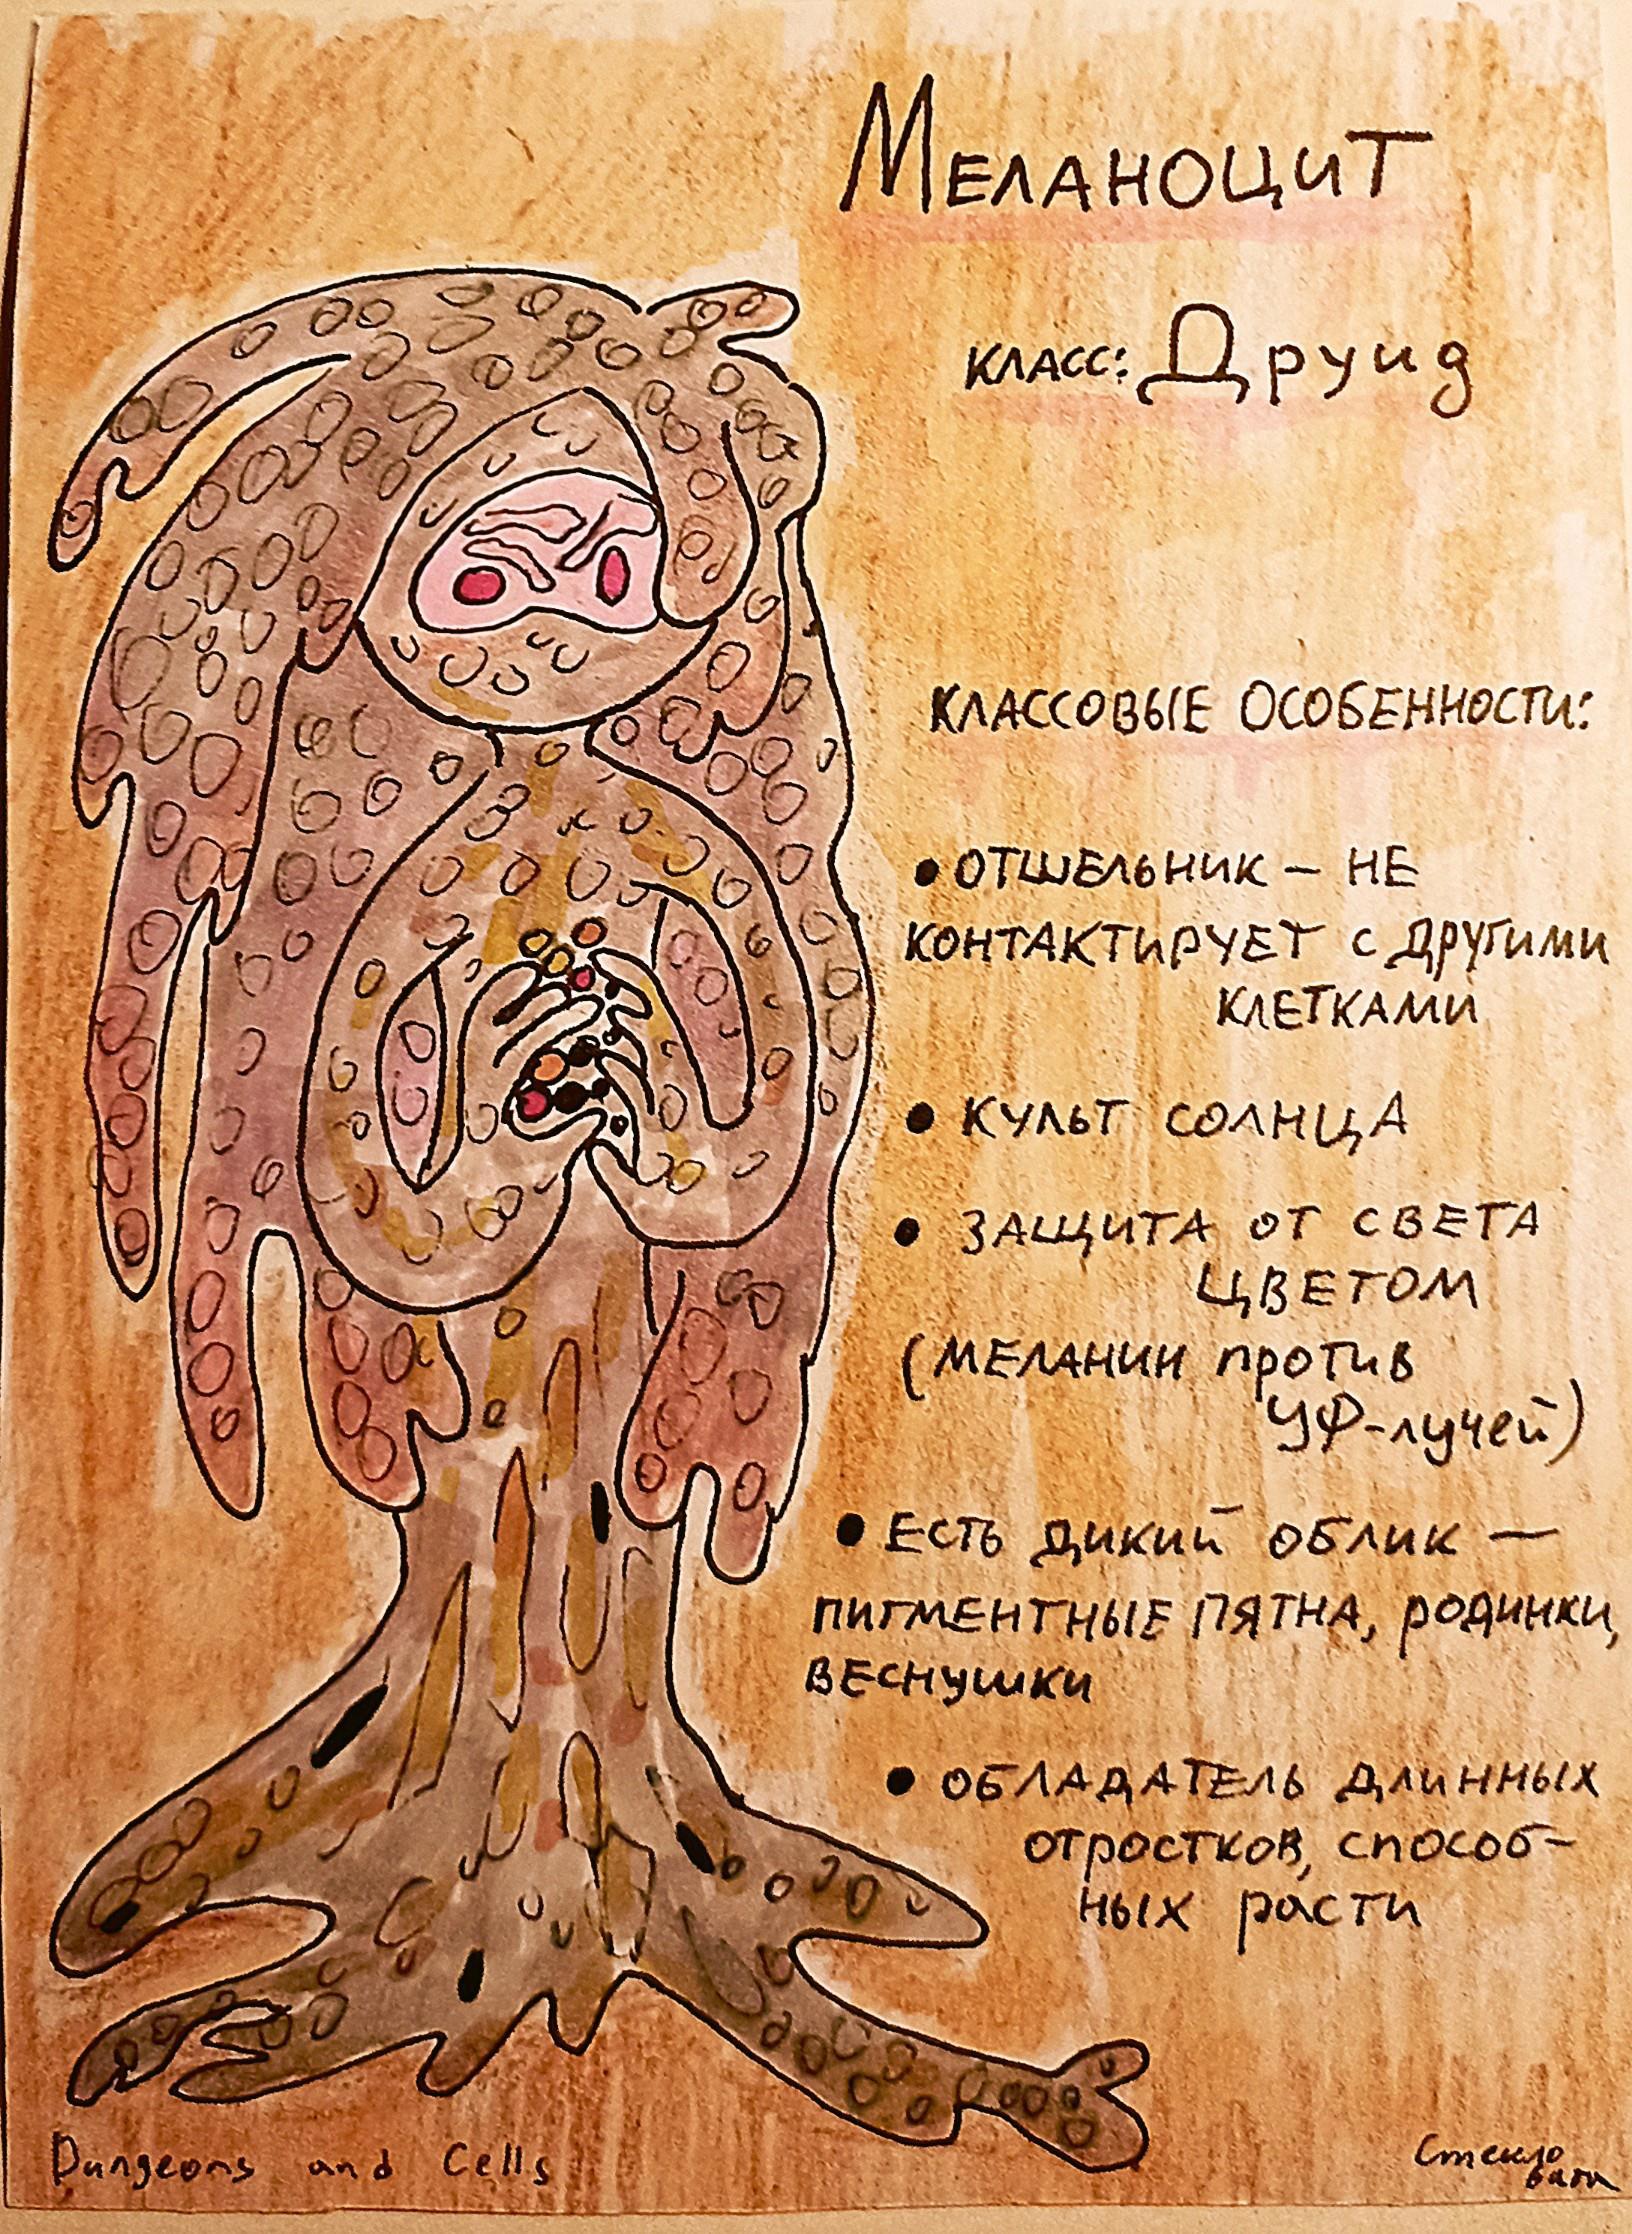 Меланоцит
класс: Друид
классовые особенности:
• отшельник – не
контактирует с другими
клетками
• культ солнца
• защита от света
цветом
(меланин против
УФ-лучей)
• Есть дикий облик —
пигментные пятна, родинки,
веснушки
• обладатель длинных
отростков, способ-
ных расти
Dungeons and Cells
Стекло
вата